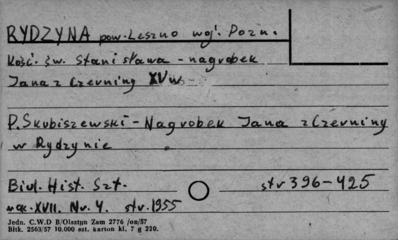 RYDZYNA pow. Leszno woj. Pozn.
Kość. św. Stanisława - nagrobek
Jana z Czerniny XV w.
P. Skubiszewski - Nagrobek Jana z Czerniny
w Rydzynie
Biul. Hist. Szt. str 396-425
rok. XVII. Nr. 4. str. 1955
Jedn. C.W.D B/Olsztyn Zam 2776 /oa/57
Bltk. 2563/57 10.000 szt. karton kl. 7 g 220.